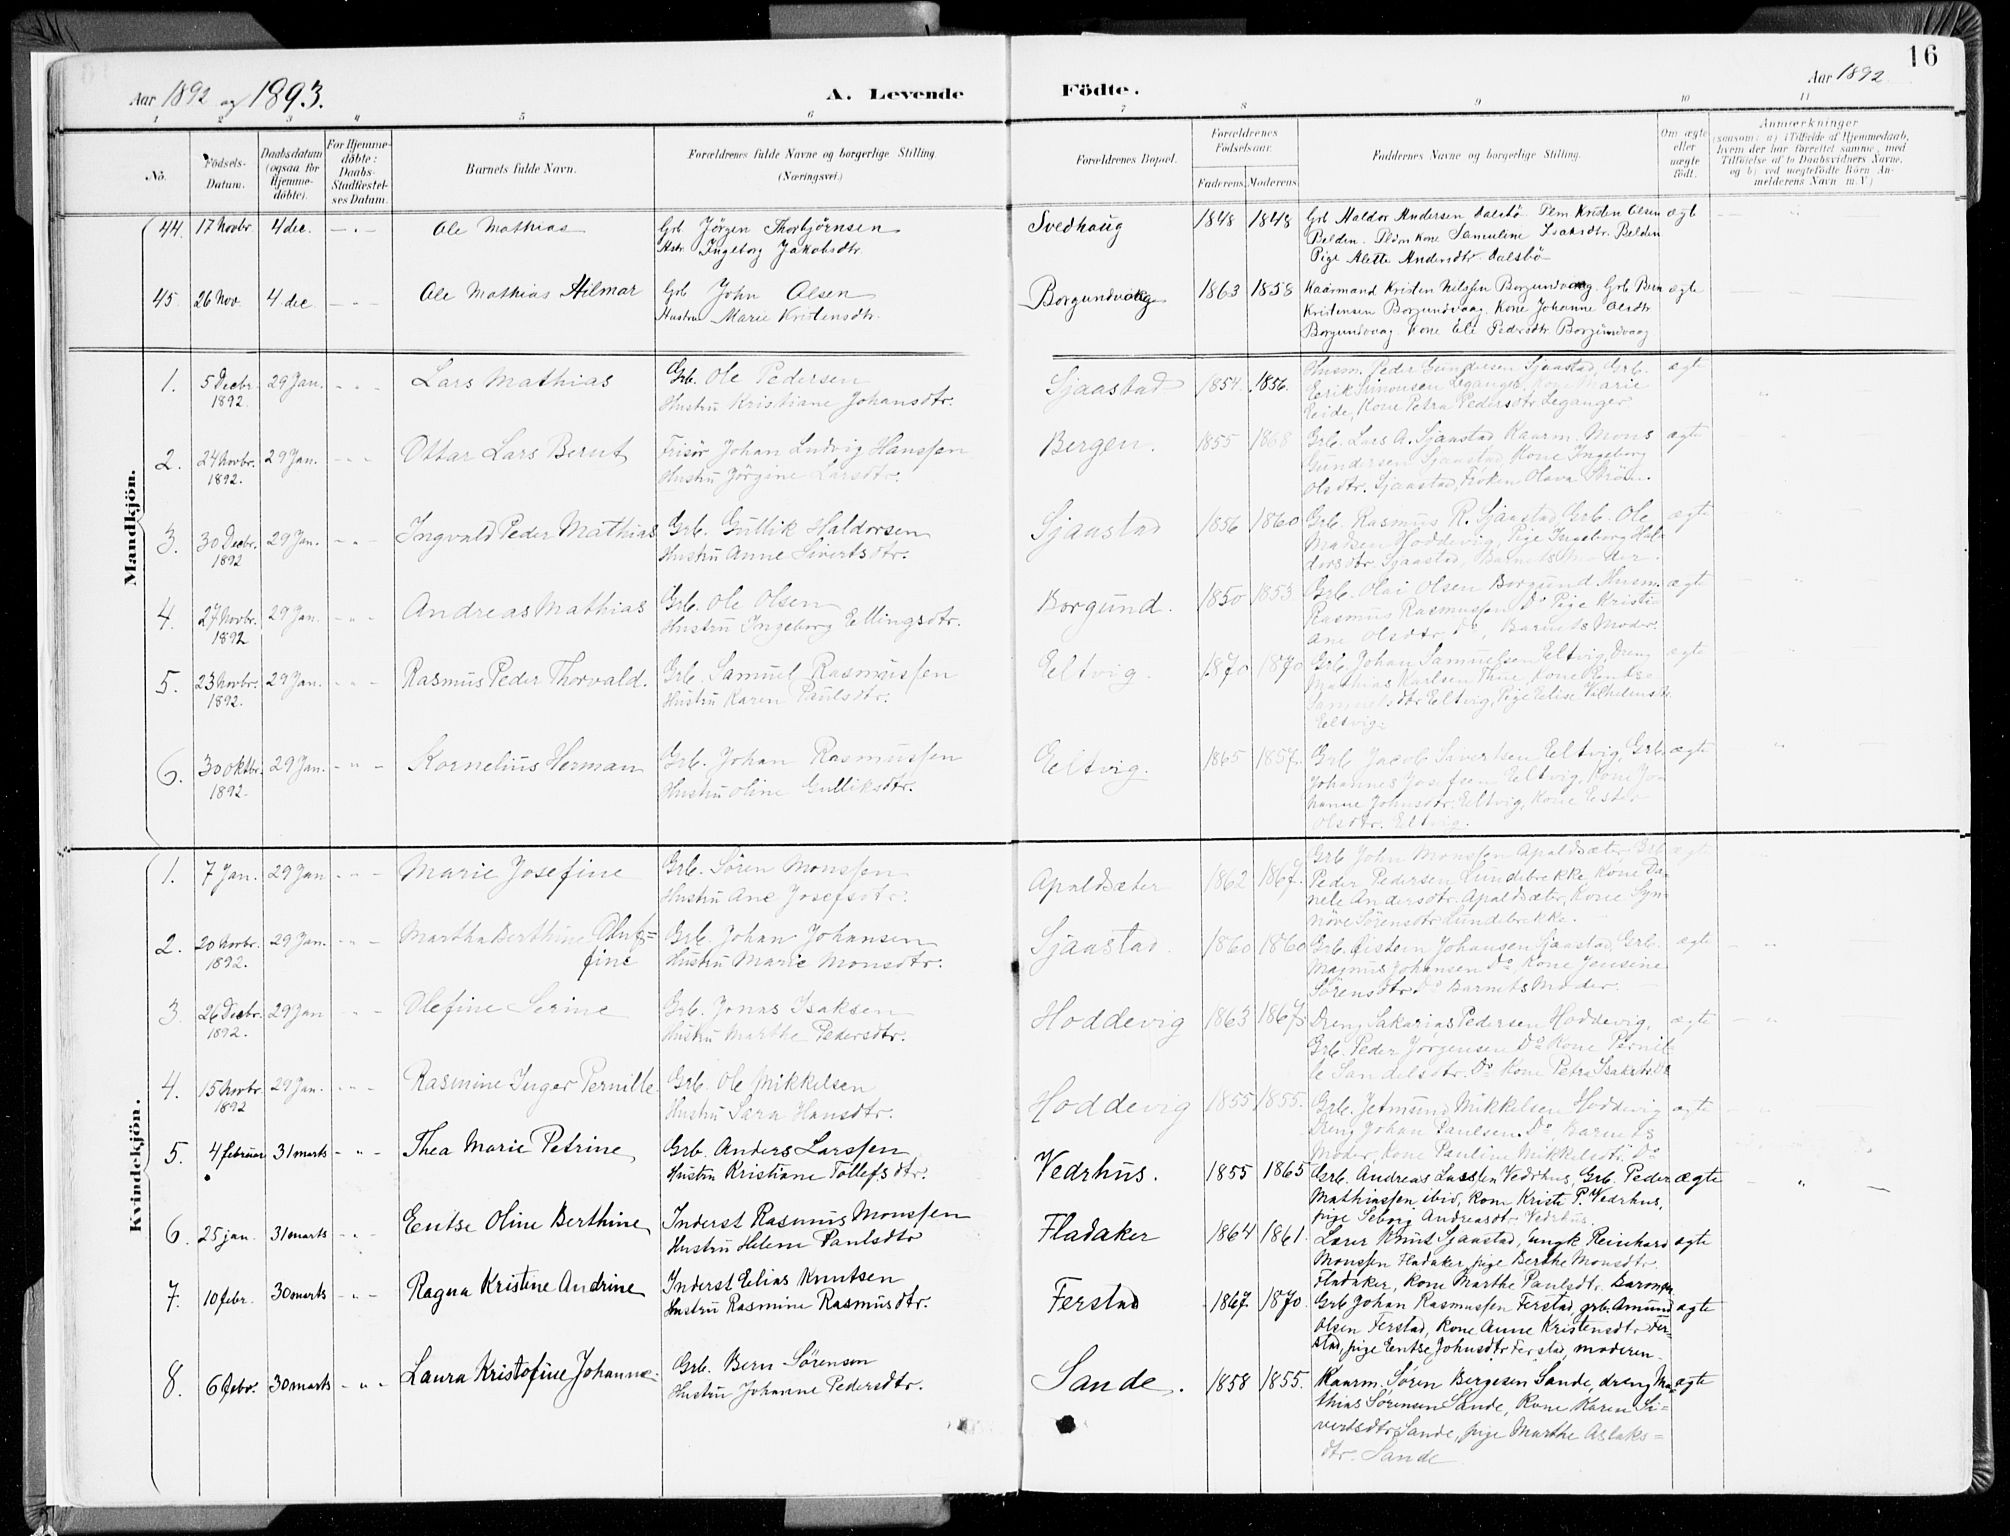 16
Aar 1892 og 1893.
A. Levende
Födte.
Aar 1892
1 2 3 4 5 6 7 8 9 10 11
No.
Födsels-
Datum.
Daabsdatum
(ogsaa for
Hjemme-
döbte).
For Hjemme-
döbte:
Daabs-
Stadfæstel-
ses Datum.
Barnets fulde Navn.
Forældrenes fulde Navne og borgerlige Stilling.
(Næringsvei.)
Forældrenes Bopæl.
Forældrenes
Födselsaar.
Faderens. Moderens.
Faddernes Navne og borgerlige Stilling.
Om ægte
eller
uægte
födt.
Anmærkninger
(saasom: a) i Tilfælde af Hjemmedaab,
hvem der har forrettet samme, med
Tilföielse af to Daabsvidners Navne,
og b) ved uægtefödte Börn An-
melderens Navn m. V.)
44. 17 Novbr. 4 dec. Ole Mathias
Grb. Jörgen Thorbjörnsen
Hstr. Ingeborg Jakobsdtr.
Svedhaug 1848 1848
Grb Haldor Andersen Aalsbö Plm Kristen Olsen
Belden. Pldm kone Samuline Isaksdtr. Belden
Pige Alette Andersdtr. Aalsbö
ægte
45. 26 Nov. 4 dec Ole Mathias Hilmar
Grb John Olsen
Hustru Marie Kristensdtr.
Borgundvaag 1863 1858
Kaarmand Kristen Nilssen Borgundvaag. Grb Bern
Kristensen Borgundvaag. Kone Johanne Olsdtr
Borgundvaag Kone Eli Pedersdtr. Borgundvaag
ægte
Mandkjön.
1. 5 Decbr. 1892. 29 Jan. Lars Mathias
Grb. Ole Pedersen
Hustru Kristiane Johansdtr.
Sjaastad 1854. 1856.
Husm. Peder Gundersen Sjaastad, Grb.
Erik Simonsen Leganger, Kone Marie
Eide, Kone Petra Pedersdtr Leganger
ægte
2. 24 Novbr. 1892. 29 Jan. Ottar Lars Bernt
Frisör Johan Ludvig Hanssen
Hustru Jörgine Larsdtr.
Bergen. 1855 1868
Grb. Lars A. Sjaastad Kaarm. Mons
Gundersen Sjaastad, Kone Ingeborg
Olsdtr. Sjaastad, Fröken Olava Ström.
ægte
3. 30 Decbr. 1892 29 Jan. Ingvald Peder Mathias
Grb. Gullik Haldorsen
Hustru Anne Sivertsdtr.
Sjaastad 1856 1860
Grb. Rasmus R. Sjaastad Grb. Ole
Madsen Hoddevig, Pige Ingeborg Hal-
dorsdtr. Sjaastad, Barnets Moder.
ægte
4. 27 Novbr. 1892 29 Jan. Andreas Mathias
Grb. Ole Olsen
Hustru Ingeborg Ellingsdtr.
Borgund. 1850 1853
Grb. Olai Olsen Borgund Husm.
Rasmus Rasmussen Do Pige Kristi-
ane Olsdtr. Do, Barnets Moder.
ægte
5. 23 Novbr. 1892. 29 Jan. Rasmus Peder Thorvald.
Grb. Samuel Rasmussen
Hustru Karen Paulsdtr.
Eltvig. 1870 1870
Grb. Johan Samuelsen Eltvig, Dreng
Mathias Karlsen Kone
Samuelsdtr Eltvig, Pige Elise Vilhelmsdtr.
Eltvig.
ægte
6. 30 Oktbr. 1892. 29 Jan. Kornelius Herman
Grb. Johan Rasmussen
Hustru Oline Gulliksdtr.
Eltvig. 1865 1857.
Grb Jacob Sivertsen Eltvig, Grb.
Johannes Josefsen Eltvig, Kone Jo-
hanne Johnsdtr. Eltvig, Kone Ester
Olsdtr. Eltvig.
ægte
Kvindekjön.
1. 7 Jan. 29 Jan Marie Josefine
Grb. Sören Monssen
Hustru Ane Josefsdtr.
Apaldsæter 1862 1867.
Grb John Monssen Apaldsæter Grb
Peder Pedersen Lundebrekke, Kone Da-
nele Andersdtr. Apaldsæter, Kone Syn-
növe Sörensdtr Lundebrekke.
ægte
2. 20 Novbr. 1892. 29 Jan. Martha Berthine Oluf=
fine
Grb. Johan Johansen
Hustru Marie Monsdtr.
Sjaastad. 1860 1860
Grb. Östein Johansen Sjaastad, Grb.
Magnus Johansen Do, Kone Jensine
Sörensdtr. Do Barnets Moder.
ægte
3. 26 Decbr. 1892. 29 Jan Olefine Serine
Grb. Jonas Isaksen
Hustru Marthe Pedersdtr.
Hoddevig 1863 1867
Dreng Sakarias Pedersen Hoddevig,
Grb. Peder Jörgensen Do Kone Pernil-
le Sandelsdtr. Do Kone Petra Isaksdtr. Do
ægte
4. 15 Novbr 1892 29 Jan. Rasmine Inger Pernille
Grb. Ole Mikkelsen
Hustru Sara Hansdtr.
Hoddevig 1855 1855.
Grb. Jetmund Mikkelsen Hoddevig
Dreng Johan Paulsen Do, Barnets
Moder, Kone Pauline Mikkelsdtr. Do
ægte
5. 4 februar 31 marts Thea Marie Petrine
Grb. Anders Larssen
Hustru Kristiane Tollefsdtr.
Vedrhus. 1855 1865
Grb. Andreas Larssen Vedrhus, Grb. Peder
Mathiassen ibid, kone Kristi P. Vedrhus,
pige Seborg Andreasdtr Vedrhus.
ægte
6. 25 jan. 31 marts Entse Oline Berthine
Inderst Rasmus Monssen
Hustru Helene Paulsdtr
Fladaker 1864 1861.
Lærer Knut Sjaastad, ungk Reinhard
Monssen Fladaker, pige Berthe Monsdtr.
Fladaker, kone Marthe Paulsdtr.
ægte
7. 10 febr. 30 marts Ragna Kristine Andrine
Inderst Elias Knutsen
Hustru Rasmine Rasmusdtr.
Ferstad 1867. 1870.
Grb Johan Rasmussen Ferstad, grb. Amund
Olsen Ferstad, Kone Anne Kristensdtr Fer-
stad, pige Entse Johnsdtr Ferstad, moderen.
ægte
8. 6 febr. 30 marts Laura Kristofine Johanne.
Grb. Bern Sörensen
Hustru Johanne Pedersdtr.
Sande. 1858 1855.
Kaarm. Sören Bergesen Sande, dreng Ma-
thias Sörensen Sande, Kone Karen Si=
vertsdtr Sande, pige Marthe Aslaks=
dtr. Sande
ægte